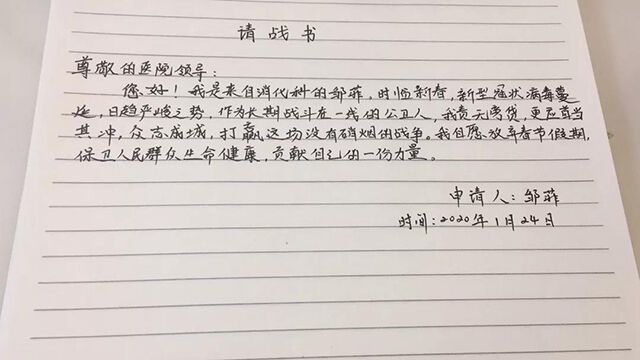 请战书
尊敬的医院领导：
您好！我是来自消化科的邹菲，时临新春，新型冠状病毒蔓
延，日趋严峻之势，作为长期战斗在一线的公卫人，我责无旁贷，更应首当
其冲，众志成城，打赢这场没有硝烟的战争。我自愿放弃春节假期，
保卫人民群众生命健康，贡献自己的一份力量。
申请人：邹菲
时间：2020年1月24日